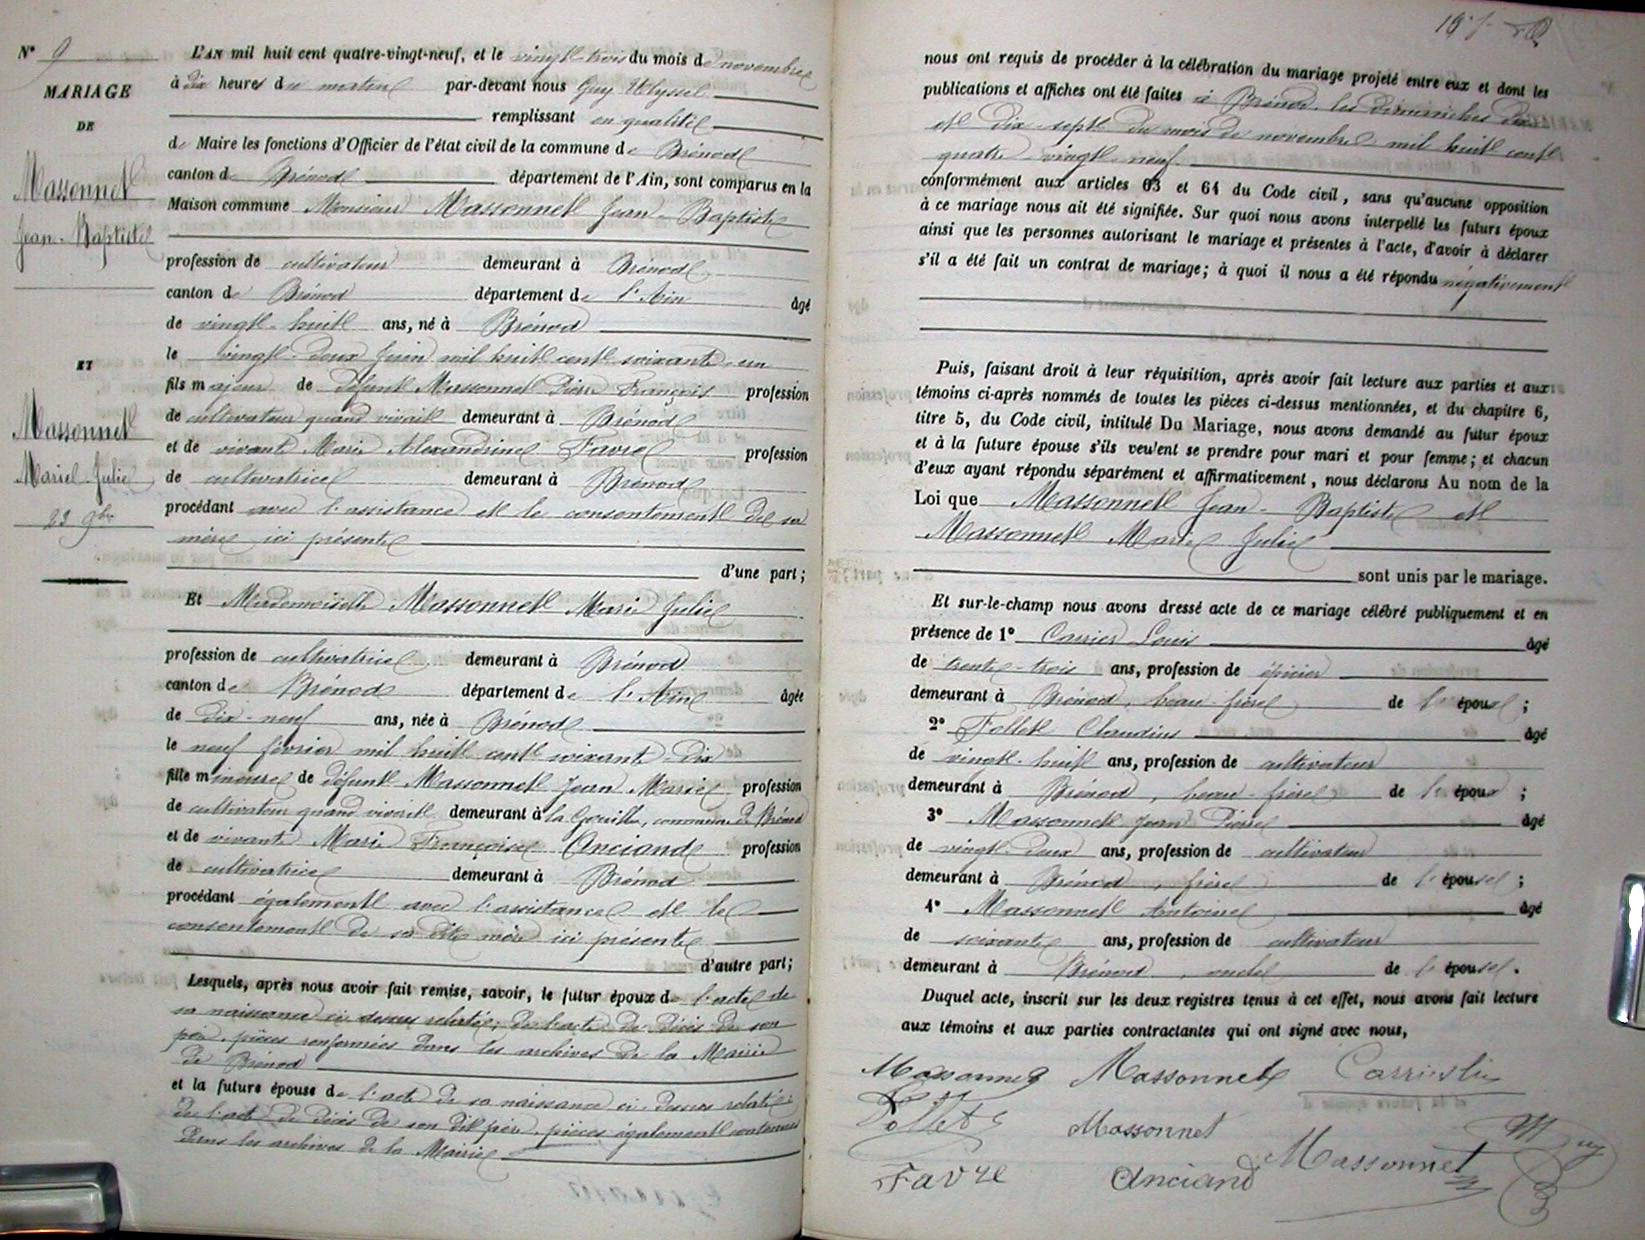 N° 9
MARIAGE
DE
Massonnet
Jean-Baptiste
ET
Massonnet
Marie Julie
23 9bre
L'AN mil huit cent quatre-vingt-neuf, et le vingt-trois du mois de novembre
à dix heures du matin par-devant nous Guy Ulysse
remplissant en qualité
de Maire les fonctions d'Officier de l'état civil de la commune de Brénod
canton de Brénod département de l'Ain, sont comparus en la
Maison commune Monsieur Massonnet Jean-Baptiste
profession de cultivateur demeurant à Brénod
canton de Brénod département de l'Ain âgé
de vingt-huit ans, né à Brénod
le vingt-deux Juin mil huit cent soixante-un
fils majeur de défunt Massonnet Pierre François profession
de cultivateur quand vivait demeurant à Brénod
et de vivante Marie Alexandrine Favre profession
de cultivatrice demeurant à Brénod
procédant avec l'assistance et le consentement de sa
mère ici présente
d'une part;
Et Mademoiselle Massonnet Marie Julie
profession de cultivatrice demeurant à Brénod
canton de Brénod département de l'Ain âgée
de dix-neuf ans, née à Brénod
le neuf février mil huit cent soixante-dix
fille mineure de défunt Massonnet Jean Marie profession
de cultivateur quand vivait demeurant à la Gouille, commune de Brénod
et de vivante Marie Françoise Anciand profession
de cultivatrice demeurant à Brénod
procédant également avec l'assistance et le
consentement de sa dite mère ici présente
d'autre part;
Lesquels, après nous avoir fait remise, savoir, le futur époux de l'acte de
sa naissance ci-dessus relatée, de l'acte de décès de son
père, pièces renfermées dans les archives de la Mairie
de Brénod
et la future épouse de l'acte de sa naissance ci-dessus relatée
de l'acte de décès de son dit père, pièces également contenues
dans les archives de la Mairie
nous ont requis de procéder à la célébration du mariage projeté entre eux et dont les
publications et affiches ont été faites à Brénod les dimanches dix
et dix-sept du mois de novembre mil huit cent
quatre-vingt-neuf
conformément aux articles 63 et 64 du Code civil, sans qu'aucune opposition
à ce mariage nous ait été signifiée. Sur quoi nous avons interpellé les futurs époux
ainsi que les personnes autorisant le mariage et présentes à l'acte, d'avoir à déclarer
s'il a été fait un contrat de mariage; à quoi il nous a été répondu négativement
Puis, faisant droit à leur réquisition, après avoir fait lecture aux parties et aux
témoins ci-après nommés de toutes les pièces ci-dessus mentionnées, et du chapitre 6,
titre 5, du Code civil, intitulé Du Mariage, nous avons demandé au futur époux
et à la future épouse s'ils veulent se prendre pour mari et pour femme; et chacun
d'eux ayant répondu séparément et affirmativement, nous déclarons Au nom de la
Loi que Massonnet Jean-Baptiste et
Massonnet Marie Julie
sont unis par le mariage.
Et sur-le-champ nous avons dressé acte de ce mariage célébré publiquement et en
présence de 1° Carrier Louis âgé
de trente-trois ans, profession de épicier
demeurant à Brénod, beau-frère de l'épouse;
2° Follet Claudius âgé
de vingt-huit ans, profession de cultivateur
demeurant à Brénod, beau-frère de l'époux;
3° Massonnet Jean Pierre âgé
de vingt-deux ans, profession de cultivateur
demeurant à Brénod, frère de l'épouse;
4° Massonnet Antoine âgé
de soixante ans, profession de cultivateur
demeurant à Brénod, oncle de l'épouse.
Duquel acte, inscrit sur les deux registres tenus à cet effet, nous avons fait lecture
aux témoins et aux parties contractantes qui ont signé avec nous,
Massonnet Massonnet Carrier
Follet Massonnet Guy
Favre Anciand Massonnet